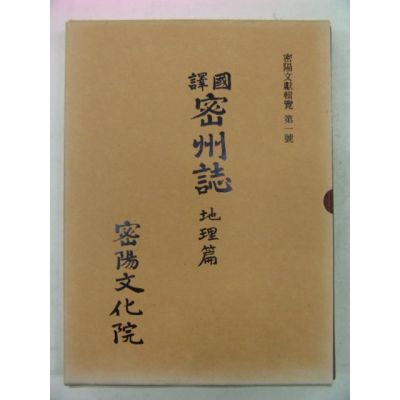 密陽文獻輯覽 第一號
國譯
密州誌
地理篇
密陽文化院